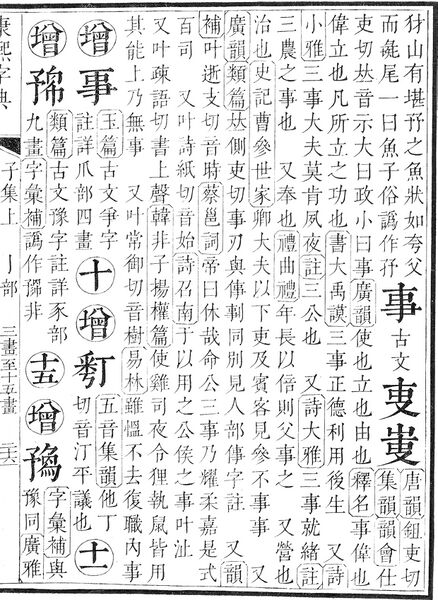 犲山有堪㐨之魚狀如夸父
而彘尾一曰魚子俗譌作㐨
事 古文 叓
唐韻鉏吏切
集韻韻會仕
吏切𠀤音示大曰政小曰事廣韻使也立也由也釋名事偉也
偉立也凡所立之功也書大禹謨三事正德利用後生 又詩
小雅三事大夫莫肯夙夜註三公也 又詩大雅三事就緒註
三農之事也 又奉也禮曲禮年長以倍則父事之 又營也
治也史記曹參世家卿大夫以下吏及賓客見參不事事 又
廣韻類篇𠀤側吏切事刃與倳剚同別見人部倳字註 又韻
補叶逝支切音時蔡邕詞帝曰休哉命公三事乃耀柔嘉是式
百司 又叶詩紙切音始詩召南于以用之公侯之事叶沚
又叶疎語切書上聲韓非子揚權篇使雞司夜令狸執鼠皆用
其能上乃無事 又叶常御切音樹易林雖慍不去復職內事
增
玉篇古文爭字
註詳爪部四畫
十 增
五音集韻他丁
切音汀平議也
十一
增
類篇古文豫字註詳豕部
九畫字彙補譌作非
十五 增
字彙補與
豫同廣雅
康熙字典 子集上 亅部 三畫至十五畫 二六